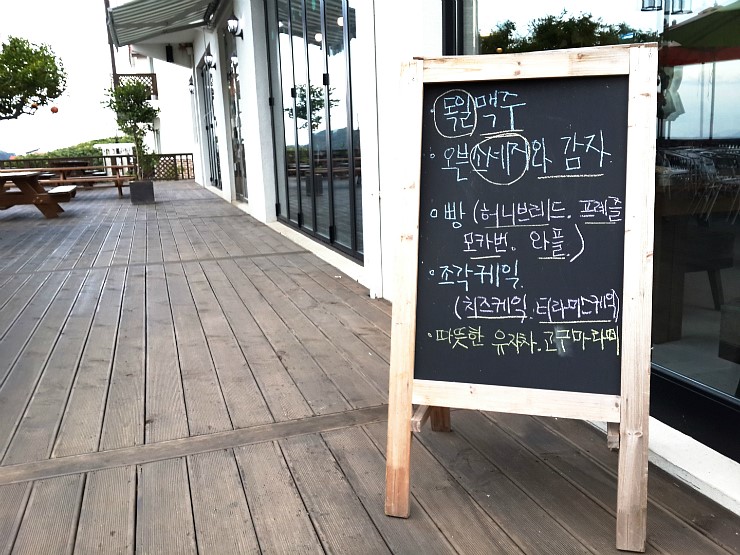 · 독일 맥주
· 오븐 소세지와 감자.
· 빵 (허니브레드. 프레즐
모카번. 와플.)
· 조각케익.
(치즈케익. 티라미스케익)
· 따뜻한 유자차. 고구마라떼